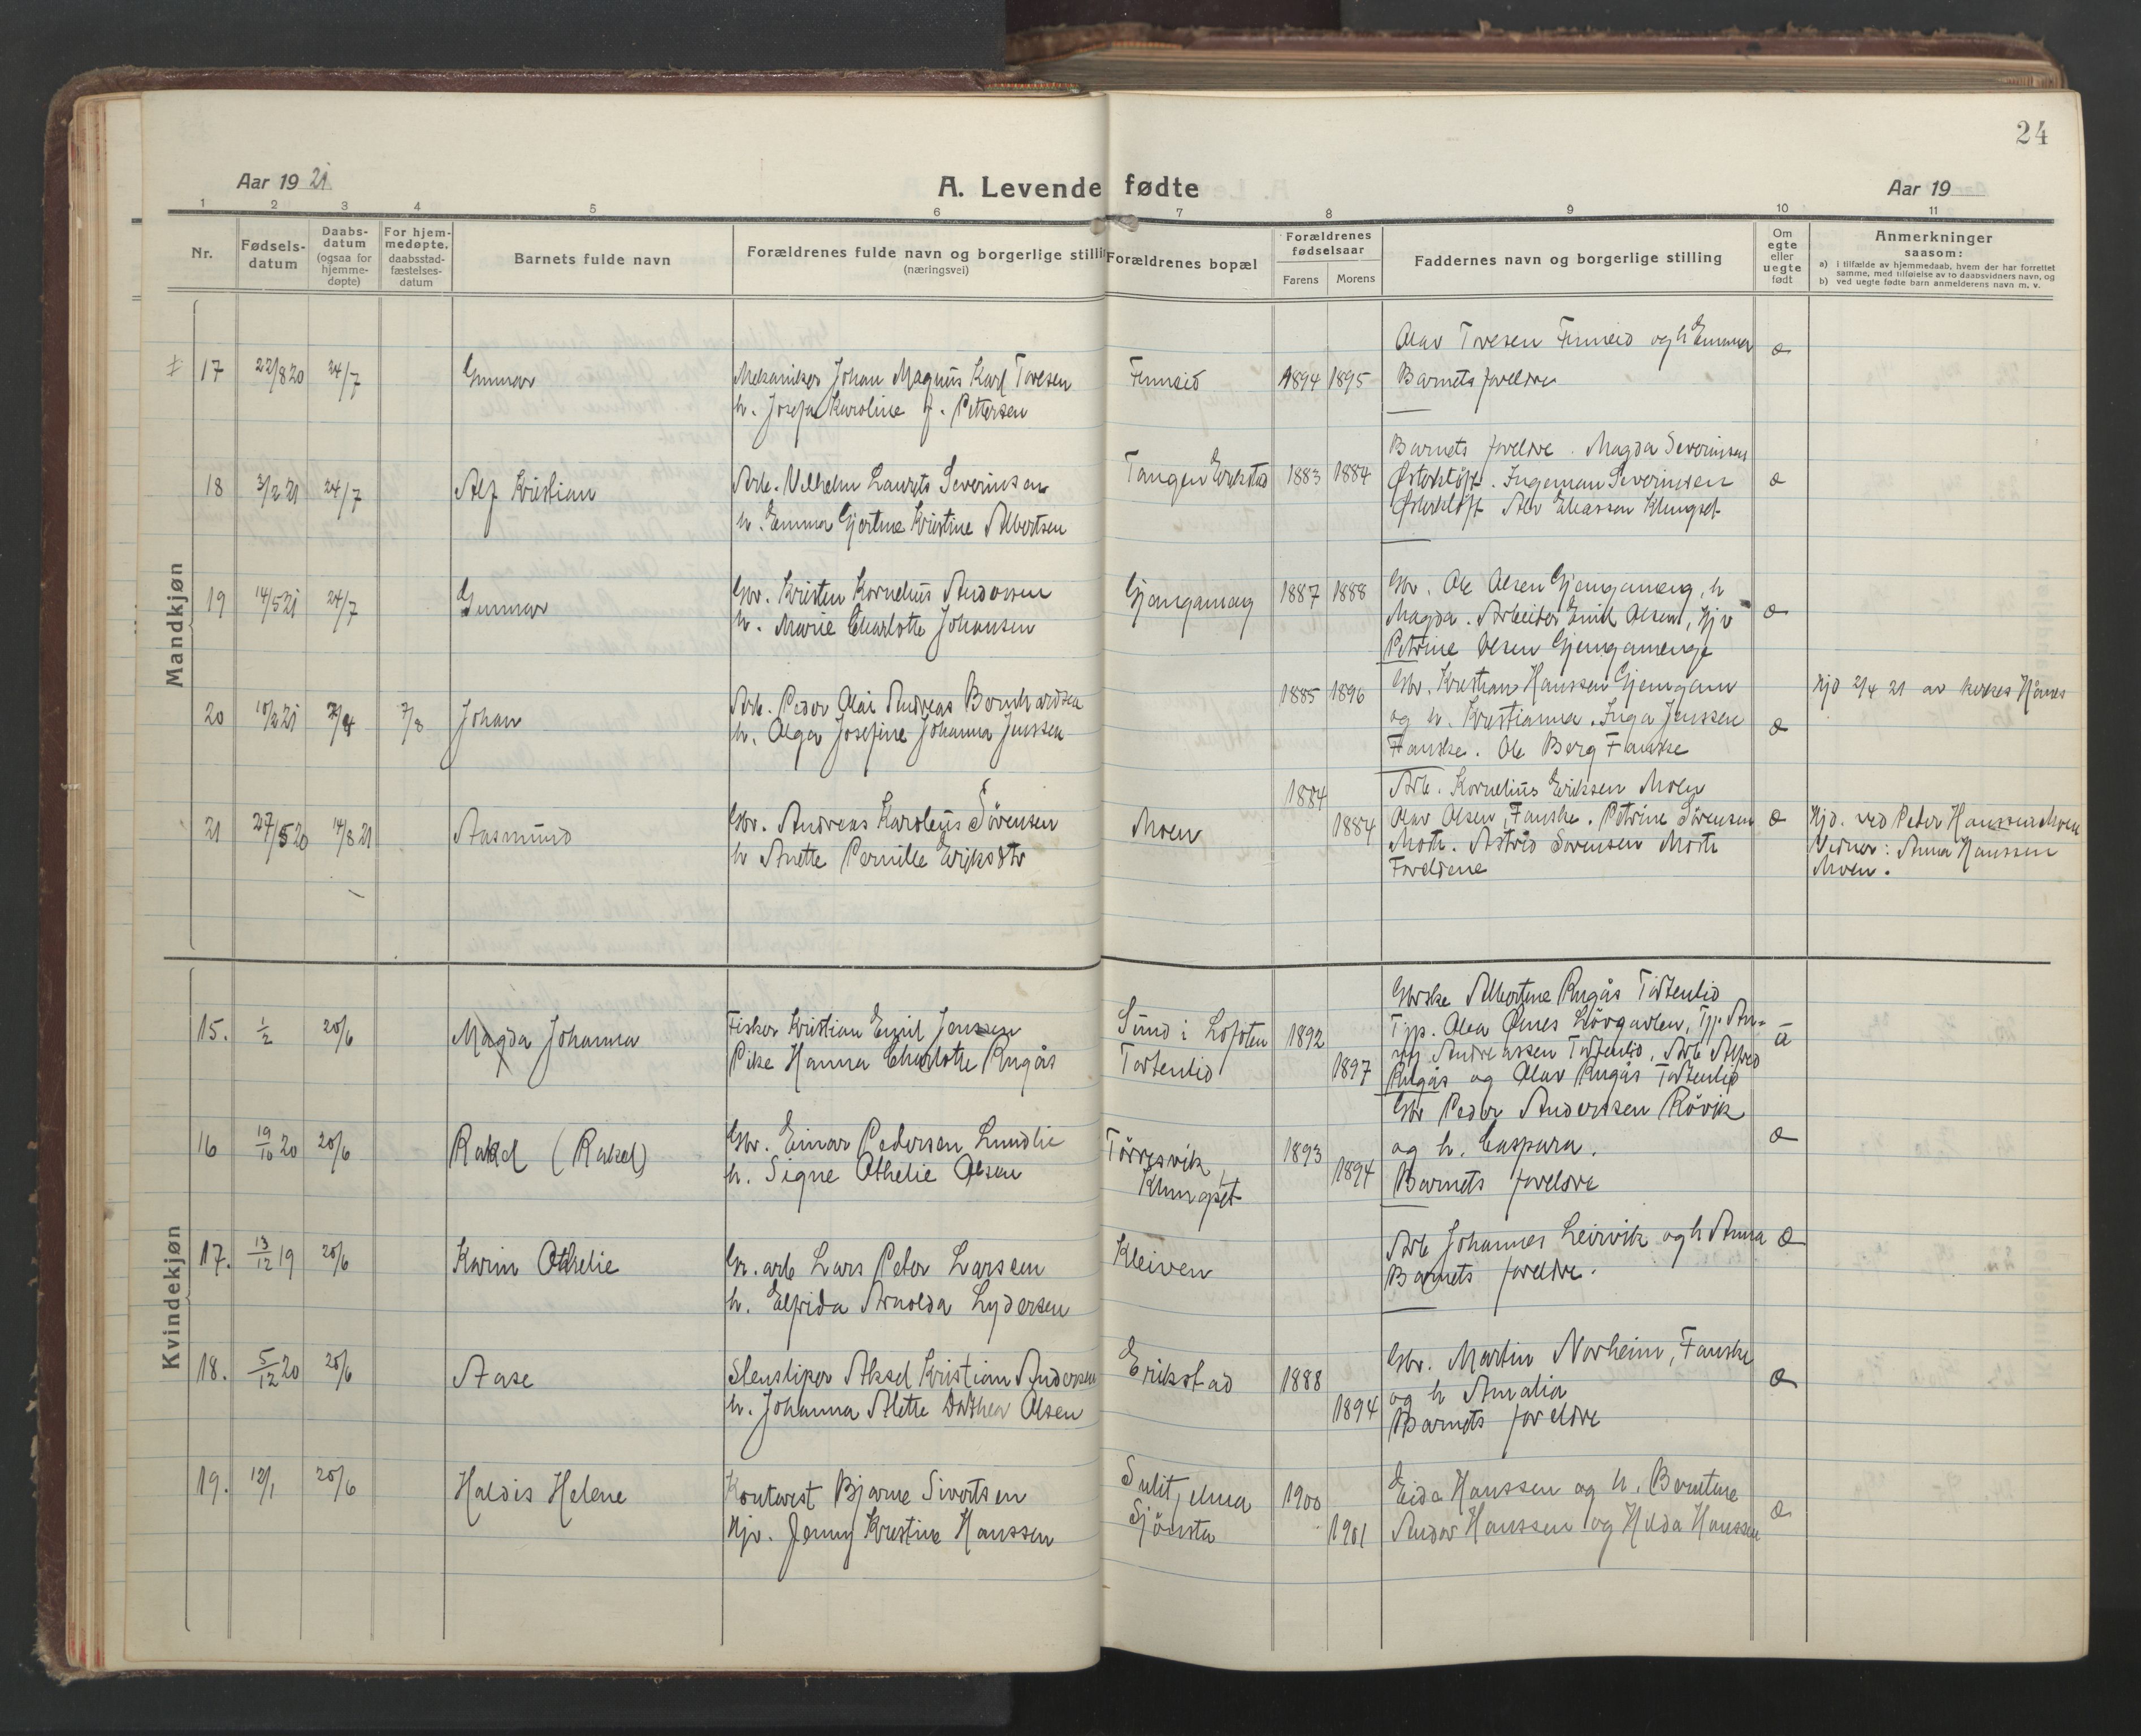 24
Aar 19 21
A. Levende fødte
Aar 19
1 2 3 4 5 6 7 8 9 10 11
Nr.
Fødsels-
datum
Daabs-
datum
(ogsaa for
hjemme-
døpte)
For hjem-
medøpte.
daabsstad-
fæstelses-
datum
Barnets fulde navn
Forældrenes fulde navn og borgerlige stilling
(næringsvei)
Forældrenes bopæl
Forældrenes
fødselsaar
Farens Morens
Faddernes navn og borgerlige stilling
Om
egte
eller
uegte
født
Anmerkninger
saasom:
a) i tilfælde av hjemmedaab, hvem der har forrettet
samme, med tilføielse av to daabsvidners navn, og
b) ved uegte fødte barn anmelderens navn m. v.
Mandkjøn
17 22/8 20 24/7 Gunnar
Mekaniker Johan Magnus Karl Toresen
h. Josefa Karoline f. Pettersen
Finneid
1894 1895
Olav Toresen Finneid og h Emma
Barnets foreldre
æ
18 3/2 21 24/7 Alf Kristian
Arb. Vilhelm Laurits Severinsen
h. Emma Gjertine Kristine Albertsen
Tangen Erikstad
1883 1884
Barnets foreldre. Magda Severinsen
Østerkløft. Ingeman Severinsen
Østerkløft Eliassen Klungset
æ
19 14/5 21 24/7 Gunnar
Gbr. Kristen Kornelius Andersen
h. Marie Charlotte Johansen
Gjengameng
1887 1888
Gbr. Ole Olsen Gjengameng, h
Magda. Arbeider Emil Olsen,
Petrine Olsen Gjengamenge
æ
20 10/2 21 7/8 Johan
Arb. Peder Olai Andreas Bernhardsen
h. Olga Josefine Johanna Jenssen
1885 1896
Gbr. Kristian Hanssen Gjengam
og h. Kristianna. Inga Jenssen
Fauske. Ole Berg Fauske
æ
Hjd 2/4 21 av
21 27/5 20 14/8 21 Aasmund
Gbr. Andreas Karolius Sørensen
h Anette Pernille Eriksdtr
Moen
1884
1884
Arb. Kornelius Eriksen Moen
Olav Olsen, Fauske. Petrine Sørensen
Moen. Astrid Sørensen Moen
Foreldrene
æ
Hjd. ved Peter Hanssen Moen
Vidner: Anna Hanssen
Moen.
Kvindekjøn
15. 1/2 20/6 Magda Johanna
Fisker Kristian Emil Jenssen
Pike Hanna Charlotte Rugås
Sund i Lofoten
Tortenlid
1892
1897
Gbrske Albertine Rugås Tortenlid
Tjp. Olea Øines Løvgavlen, Tjp. An-
ny Andreassen Tortenlid, Arb Alfred
Rugås og Olav Rugås Tortenlid
16 19/10 20 20/6 Rakel (Rakel)
Gbr. Einar Pedersen Lundli
h. Signe Othelie Olsen
Tørresvik,
Klungset
1893
1894
Gbr Peder Anderssen Røvik
og h. Caspara.
Barnets foreldre
æ
17. 13/12 19 20/6 Karin Othelie
Gr. arb Lars Peter Larsen
h. Elfrida Arnolda Lydersen
Kleiven
Arb Johannes Leivvik og h Anna
Barnets foreldre.
æ
18. 5/12 20 20/6 Aase
Stensliper Aksel Kristian Andersen
h. Johanna Alette Dorthea Olsen
Erikstad
1888
1894
Gbr. Martin Norheim, Fauske
og h Amalia
Barnets foreldre
æ
19. 12/1 20/6 Haldis Helene
Kontorist Bjarne Sivertsen
Hjv. Jenny Kristine Hanssen
Sulitjelma
Sjönstå
1900
1901
Eida Hanssen og h. Berntine
Andor Hanssen og Hilda Hanssen
æ